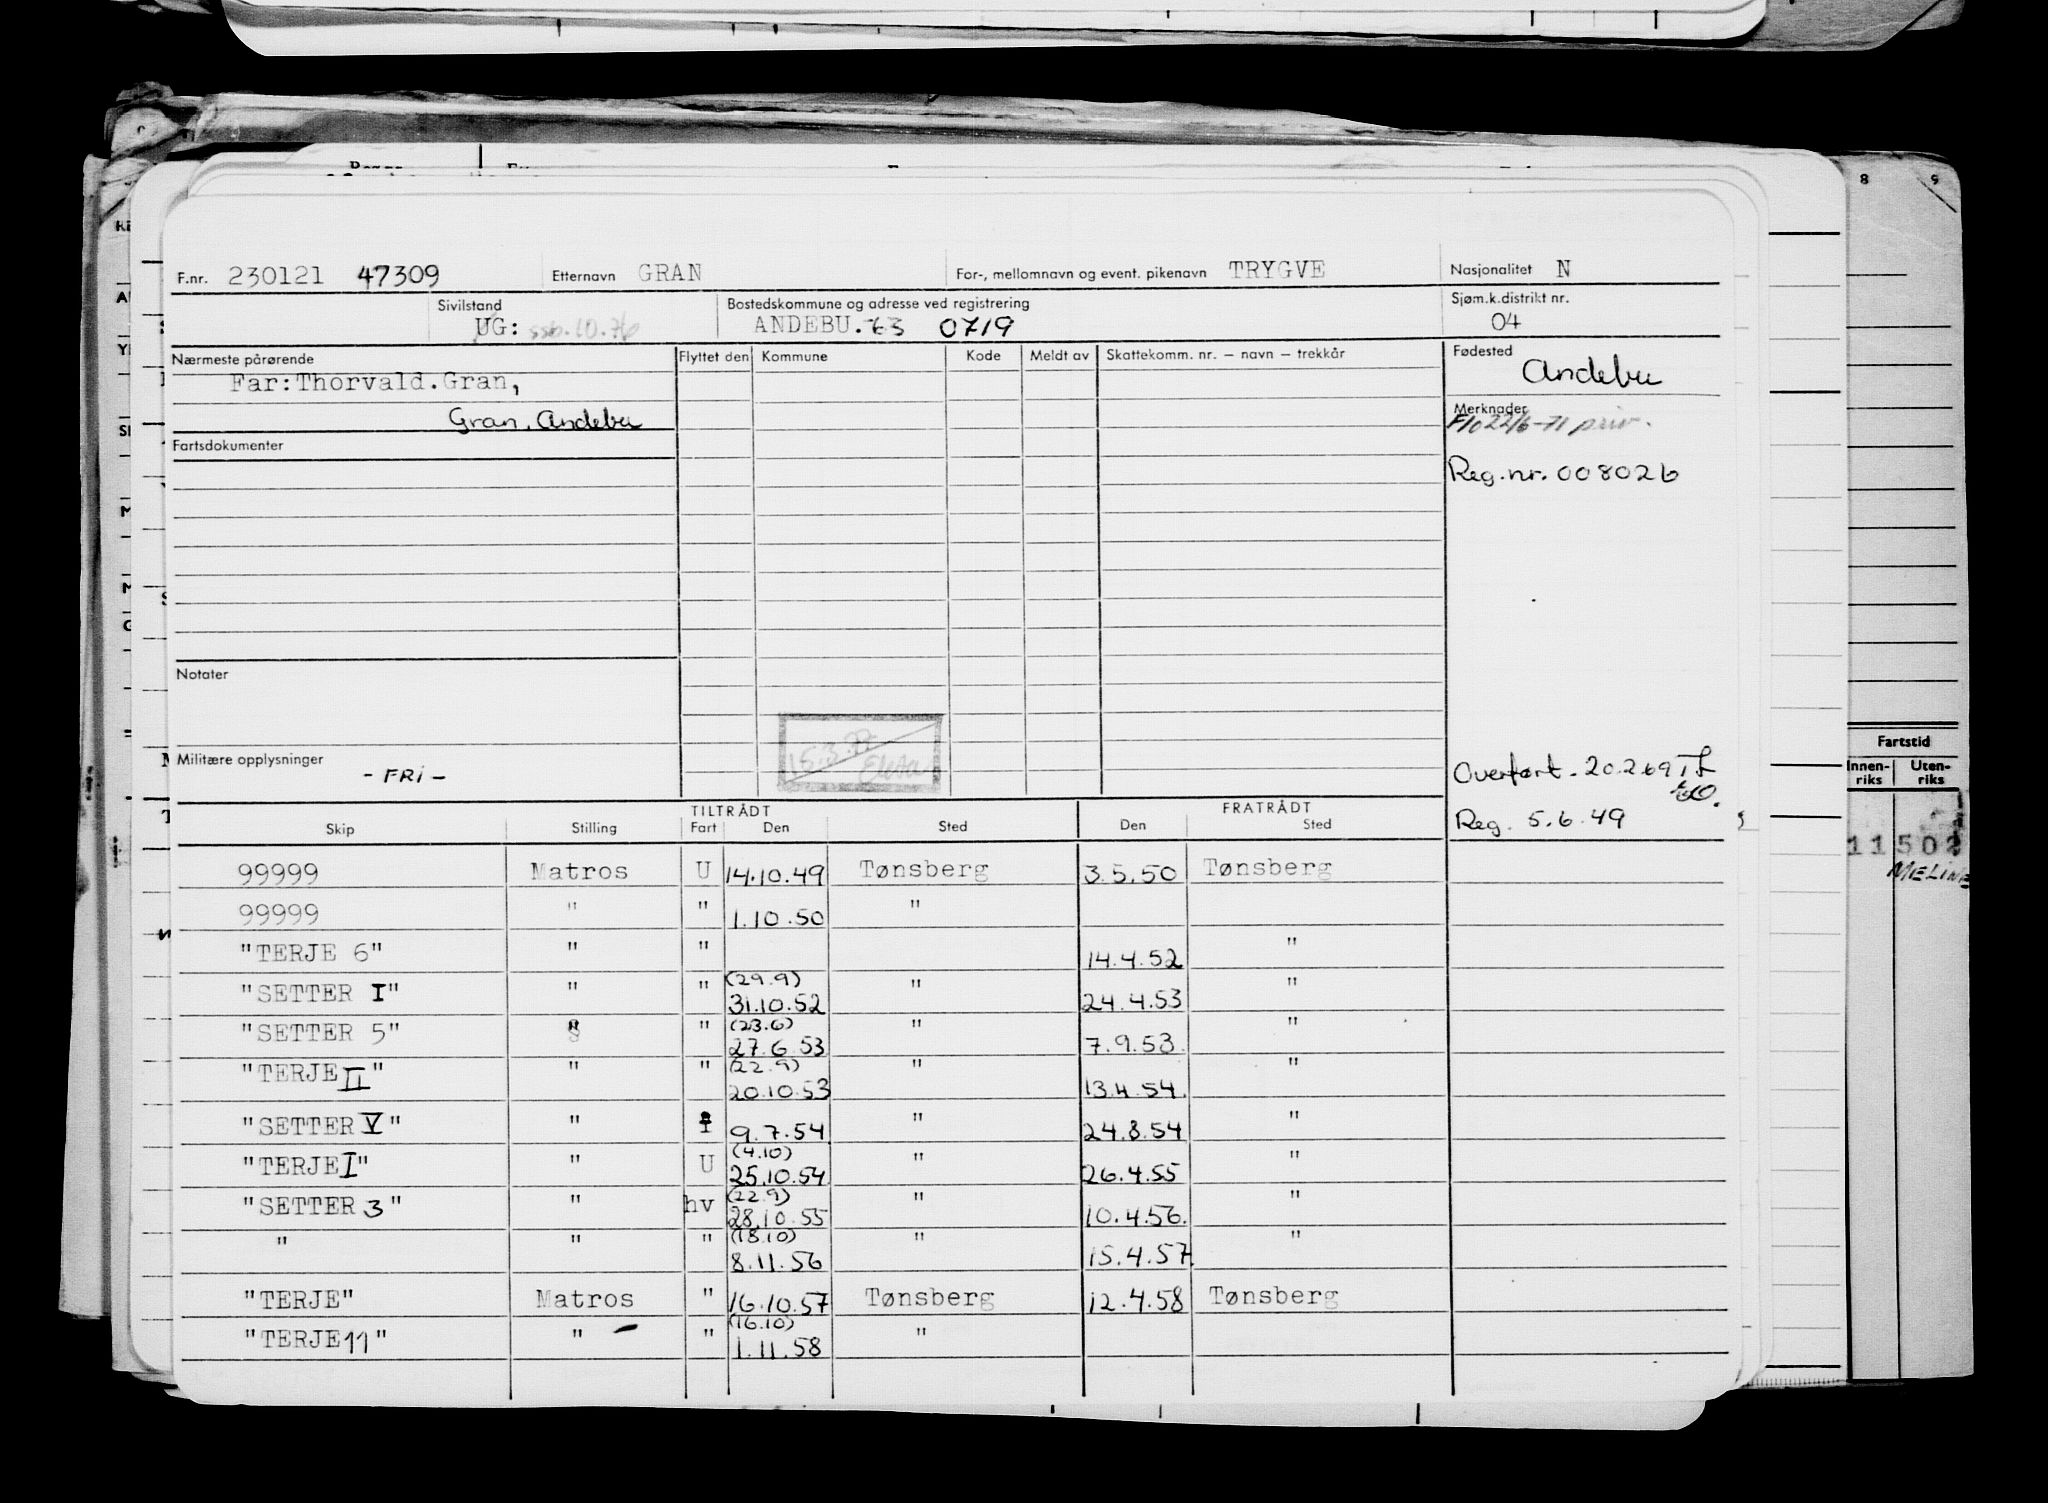 F.nr. 230121 47309 Etternavn GRAN For-, mellomnavn og event. pikenavn TRYGVE Nasjonalitet N
Sivilstand UG: ssb.10.76 Bostedskommune og adresse ved registrering ANDEBU. 0719 Sjøm.k.distrikt nr. 04
Nærmeste pårørende Flyttet den Kommune Kode Meldt av Skattekomm. nr. – navn – trekkår Fødested
Far:Thorvald.Gran, Andebu
Gran, Andebu Merknader
22/6-71 priv.
Fartsdokumenter
Reg.nr. 008026
Notater
15.3.77
Militære opplysninger - FRI -
Overført. 20.2.69
Reg. 5.6.49
TILTRÅDT FRATRÅDT
Skip Stilling Fart Den Sted Den Sted
99999 Matros U 14.10.49 Tønsberg 3.5.50 Tønsberg
99999 " " 1.10.50 "
"TERJE 6" " " 14.4.52 "
"SETTER I" " " (29.9) 31.10.52 " 24.4.53 "
"SETTER 5" " " (23.6) 27.6 53 " 7.9.53. "
"TERJE II" " " (22.9) 20.10.53 " 13.4.54. "
"SETTER V" " 9.7.54 " 24.8.54 "
"TERJE I" " U (4.10) 25.10.54 " 26.4.55 "
"SETTER 3" " hv (22.9) 28.10.55 " 10.4.56. "
" " " (18.10) 8.11.56 " 15.4.57. "
"TERJE" Matros " 16.10.57 Tønsberg 12.4.58 Tønsberg
"TERJE 11" " " (16.10) 1.11.58 "
8 9
Fartstid
Innen-riks Uten-riks
11502